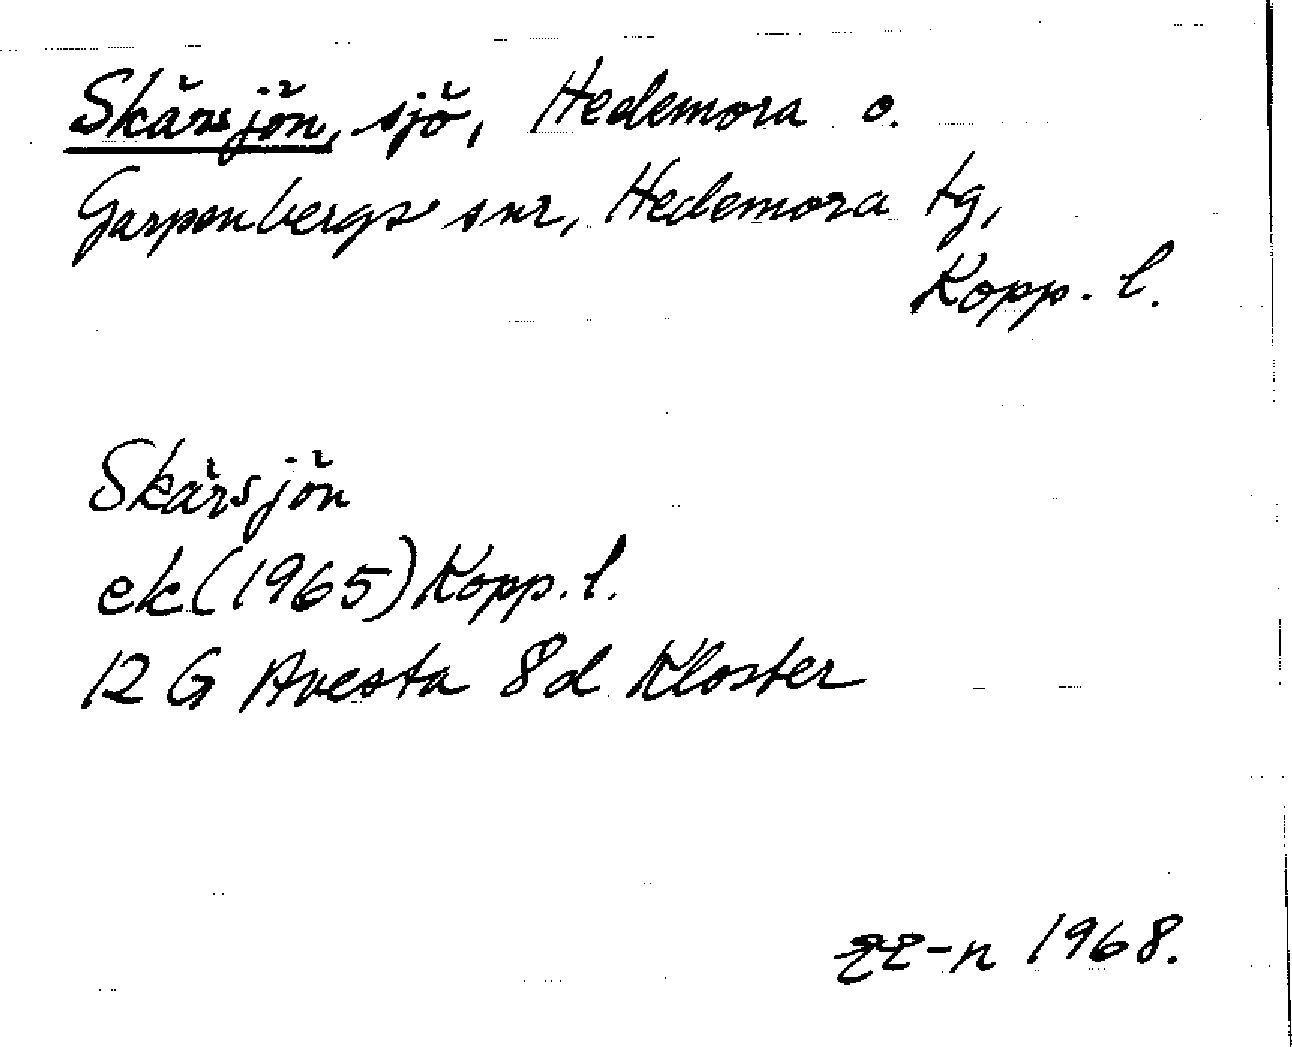 Skärsjön, sjö, Hedemora o.
Garpenbergs snr, Hedemora tg,
Kopp. l.
Skärsjön
ek (1965) Kopp. l.
12 G Avesta 8d Kloster
1968.